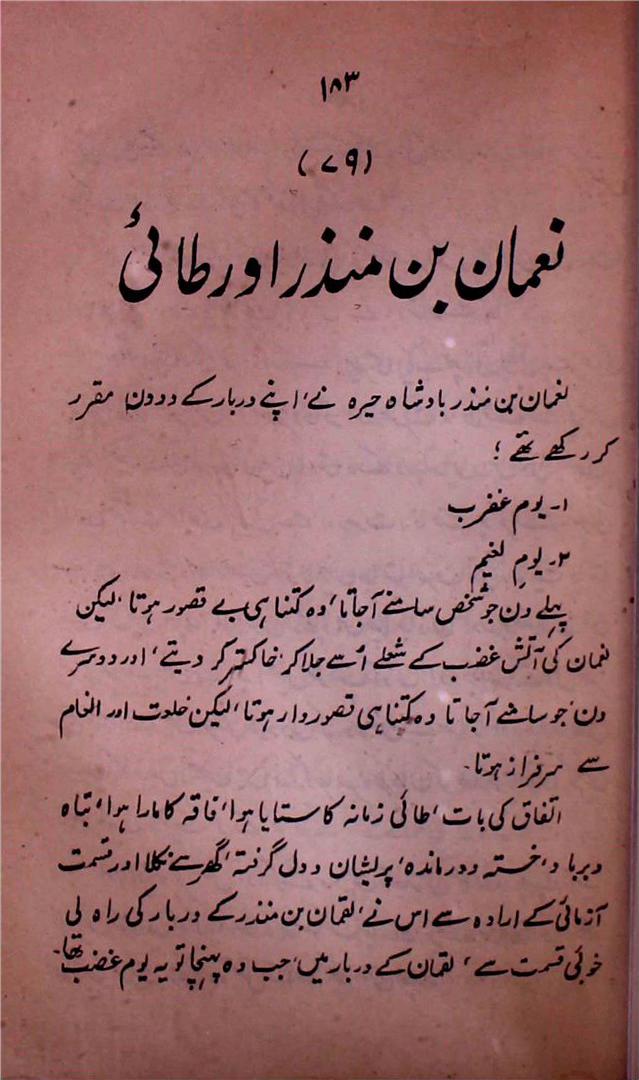 ۱۸۳
(۷۹)
نعمان بن منذر اور طائی
نعمان بن منذر بادشاہ حیرہ نے، اپنے دربار کے دو دن مقرر
کر رکھے تھے ؛
۱۔ یوم غضب
۲۔ یوم نعیم
پہلے دن جو شخص سامنے آجاتا، وہ کتنا ہی بے قصور ہوتا، لیکن
نعمان کی آتش غضب کے شعلے اُسے جلا کر خاکستر کر دیتے، اور دوسرے
دن، جو سامنے آجاتا وہ کتنا ہی قصور وار ہوتا، لیکن خلعت اور انعام
سے سرفراز ہوتا۔
اتفاق کی بات، طائی زمانہ کا ستایا ہوا، فاقہ کا مارا ہوا، تباہ
و برباد، خستہ و درماندہ، پریشان و دل گرفتہ، گھر سے نکلا اور قسمت
آزمائی کے ارادہ سے اس نے، نعمان بن منذر کے دربار کی راہ لی
خوبی قسمت سے، نعمان کے دربار میں، جب وہ پہنچا تو یہ یوم غضب تھا۔